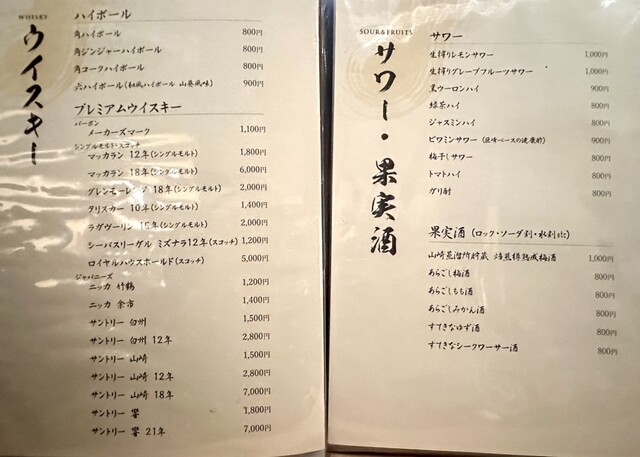 WHISKY
ウイスキー
ハイボール
角ハイボール 800円
角ジンジャーハイボール 800円
角コークハイボール 800円
六ハイボール(和風ハイボール 山葵風味) 900円
プレミアムウイスキー
バーボン
メーカーズマーク 1,100円
シングルモルト・スコッチ
マッカラン 12年(シングルモルト) 1,800円
マッカラン 18年(シングルモルト) 6,000円
グレンモーレンジ 18年(シングルモルト) 2,000円
タリスカー 10年(シングルモルト) 1,400円
ラグヴーリン 16年(シングルモルト) 2,000円
シーバスリーグル ミズナラ12年(スコッチ) 1,200円
ロイヤルハウスホールド(スコッチ) 5,000円
ジャパニーズ
ニッカ 竹鶴 1,200円
ニッカ 余市 1,400円
サントリー 白州 1,500円
サントリー 白州 12年 2,800円
サントリー 山崎 1,500円
サントリー 山崎 12年 2,800円
サントリー 山崎 18年 7,000円
サントリー 響 1,800円
サントリー 響 21年 7,000円
SOUR&FRUITS
サワー・果実酒
サワー
生搾りレモンサワー 1,000円
生搾りグレープフルーツサワー 1,000円
黒ウーロンハイ 900円
緑茶ハイ 800円
ジャスミンハイ 800円
ビワミンサワー 900円
梅干しサワー 800円
トマトハイ 800円
ガリ酎 800円
果実酒(ロック・ソーダ割・水割etc)
山崎蒸溜所貯蔵 焙煎樽熟成梅酒 1,000円
あらごし梅酒 800円
あらごしもも酒 800円
あらごしみかん酒 800円
すてきなゆず酒 800円
すてきなシークワーサー酒 800円